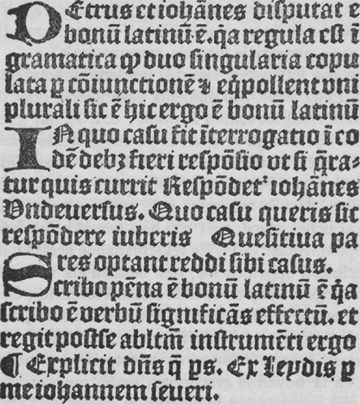 PEtrus et iohānes disputat e
bonū latinū ē. q̄a regula est ī
gramatica ꝙ duo singularia copu
lata ꝑ cōiunctionē ⁊ eq̄pollent vni
plurali sic ē hic ergo ē bonū latinū
IN quo casu fit īterrogatio ī co
dē debꝫ fieri respōsio vt si q̄ra⸗
tur quis currit Respōdet᷑ iohānes
Vndeuersus. Quo casu queris sic
respōdere iuberis Quesitiua pa
res optant reddi sibi casus.
Scribo pēna ē bonū latinū ē q̄a
scribo ē verbū significās effectū. et
regit postse abltm̄ instrumēti ergo
¶ Explicit dn̄s q̄ ps. Ex leydis ꝑ
me iohannem seueri.